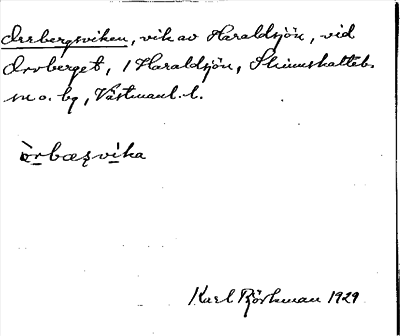 Orrbergsviken, vik av Haraldsjön, vid
Orrberget, i Haraldsjön, Skinnskatteb.
sn o. bg, Västmanl. l.
òrbæșvika
Karl Björkman 1929